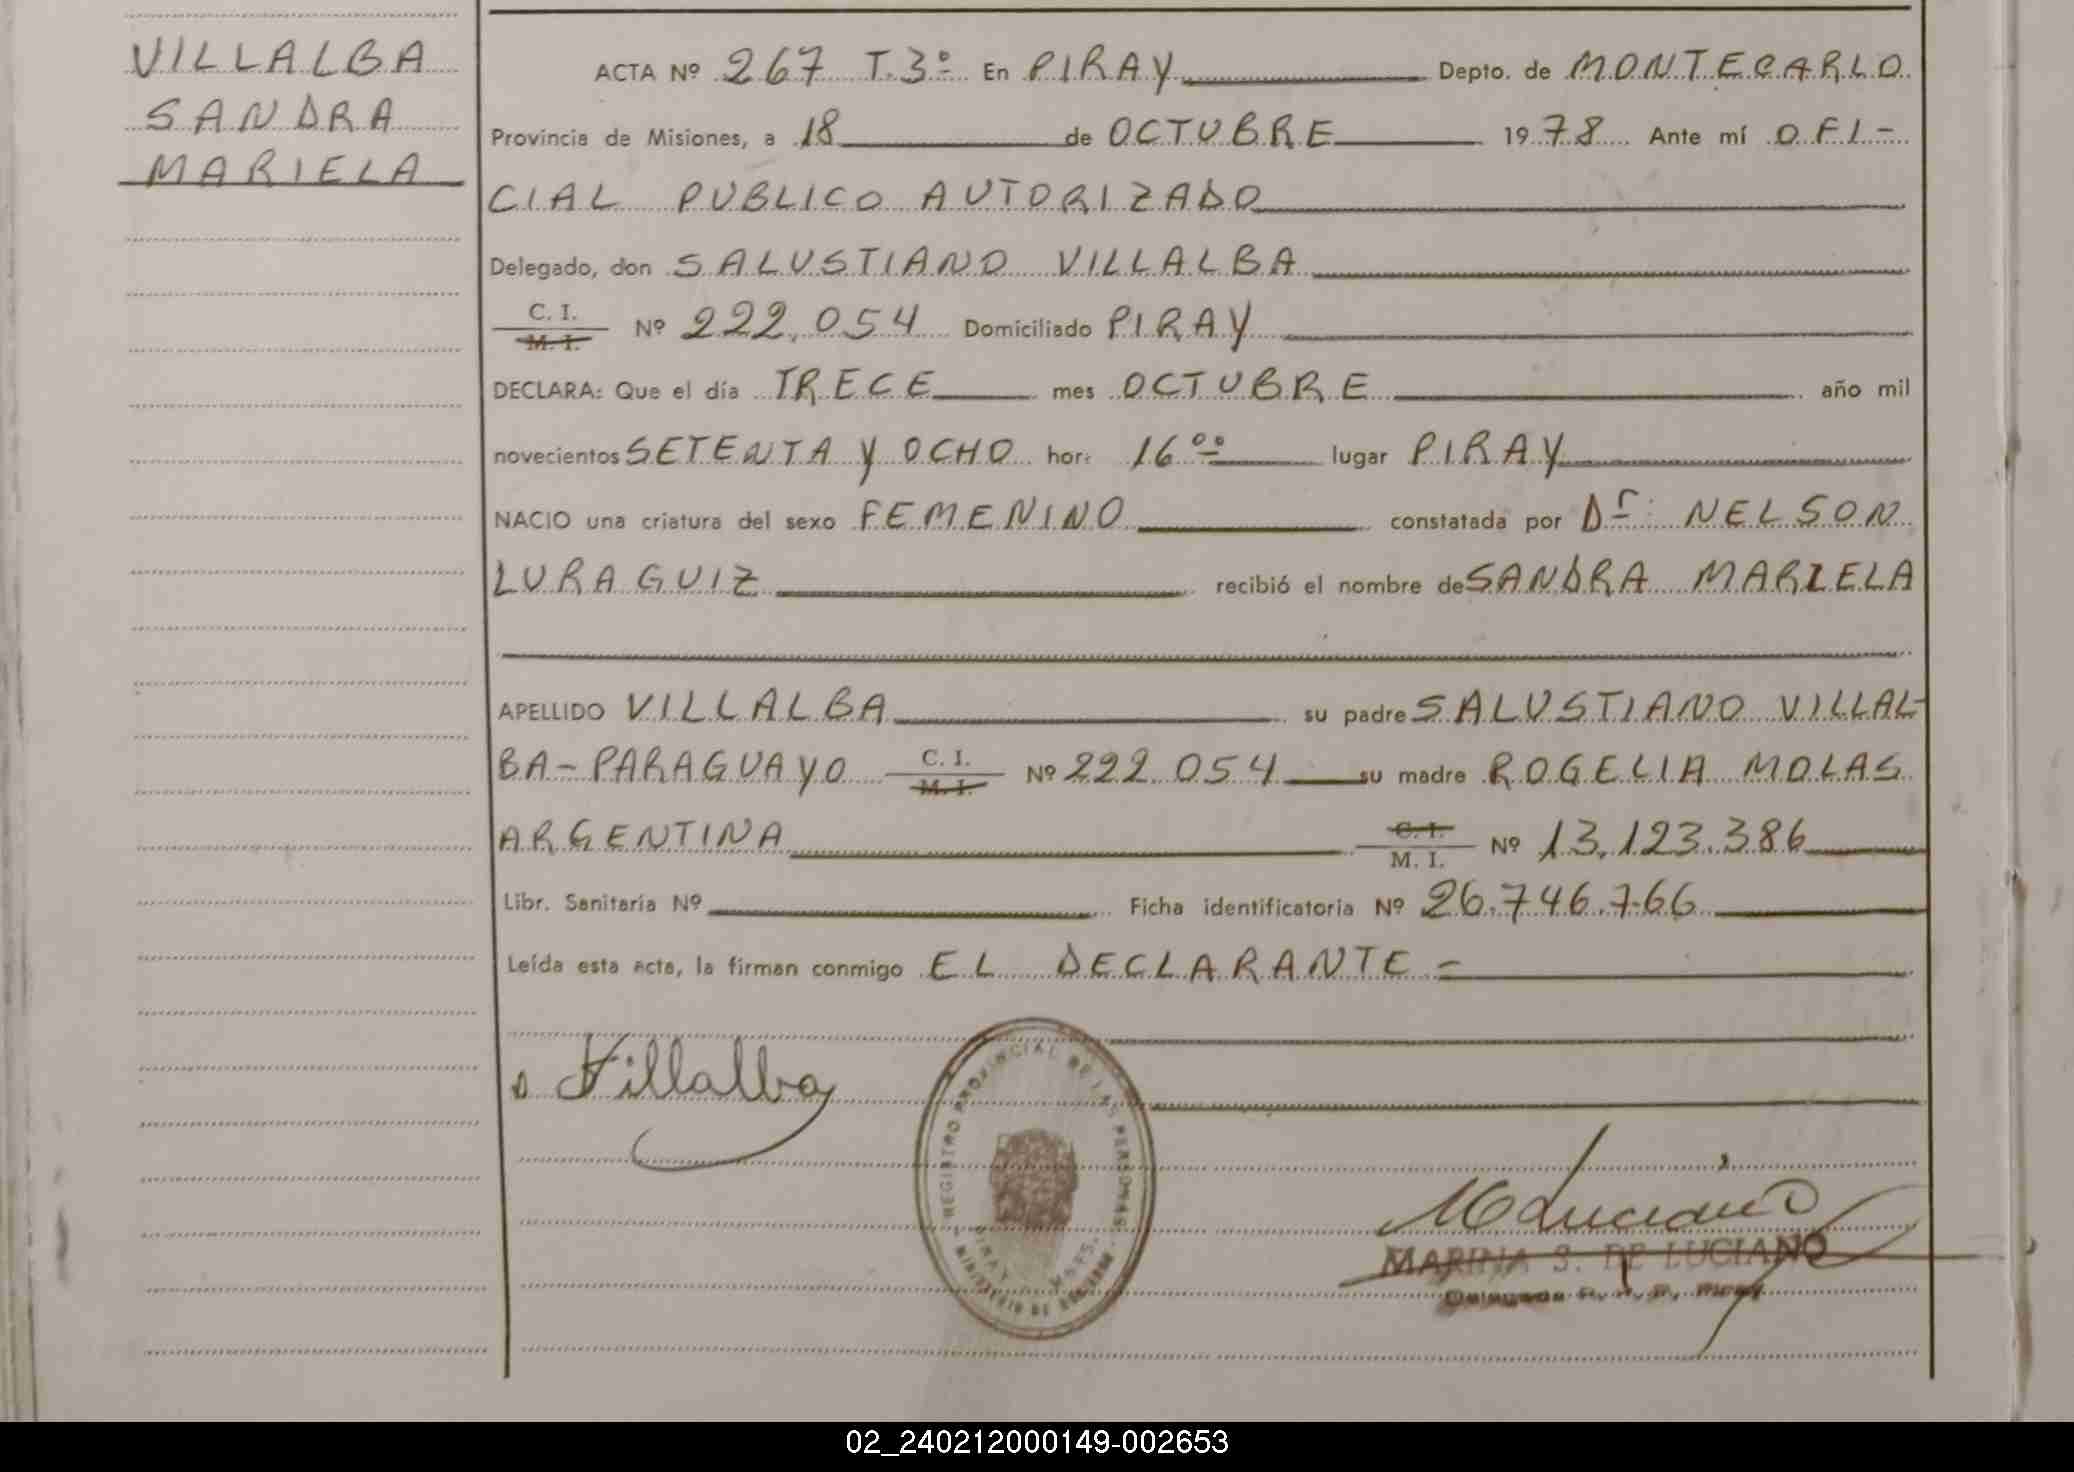 VILLALBA
SANDRA
MARIELA
ACTA Nº 267 T.3º En PIRAY Depto. de MONTECARLO
Provincia de Misiones, a 18 de OCTUBRE 1978 Ante mí OFI-
CIAL PUBLICO AUTORIZADO
Delegado, don SALUSTIANO VILLALBA
C. I.
M. I. Nº 222.054 Domiciliado PIRAY
DECLARA: Que el día TRECE mes OCTUBRE año mil
novecientos SETENTA Y OCHO hor: 16°° lugar PIRAY
NACIO una criatura del sexo FEMENINO constatada por Dr. NELSON
LURAGUIZ recibió el nombre de SANDRA MARIELA
APELLIDO VILLALBA su padre SALUSTIANO VILLAL-
BA - PARAGUAYO C. I. M. I. Nº 222.054 su madre ROGELIA MOLAS
ARGENTINA C. I. M. I. Nº 13.123.386
Libr. Sanitaria Nº Ficha identificatoria Nº 26.746.766
Leída esta acta, la firman conmigo EL DECLARANTE -
Villalba
REGISTRO PROVINCIAL DE LAS PERSONAS
MINISTERIO DE GOBIERNO
PIRAY - MNES.
M de Luciano
MARINA S. DE LUCIANO
Delegada R. P. P. Piray
02_240212000149-002653